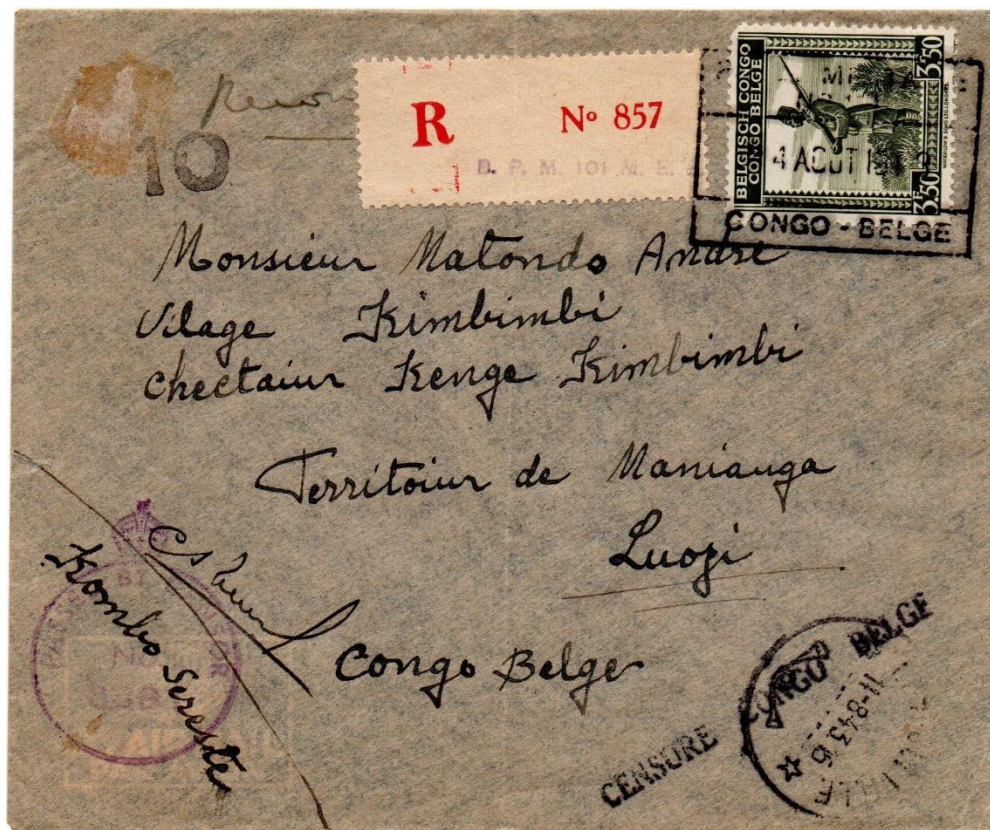 10
R No 857
B. P. M. 101 M. E.
BELGISCH CONGO
CONGO BELGE
3.50
3.50
4 AOUT 19
CONGO - BELGE
Monsieur Matondo André
Vilage Kimbimbi
Chectaiur Kenge Kimbimbi
Territoiur de Manianga
Luozi
Kombo Sereste
Congo Belge
CENSURE CONGO BELGE
11-8-43 16